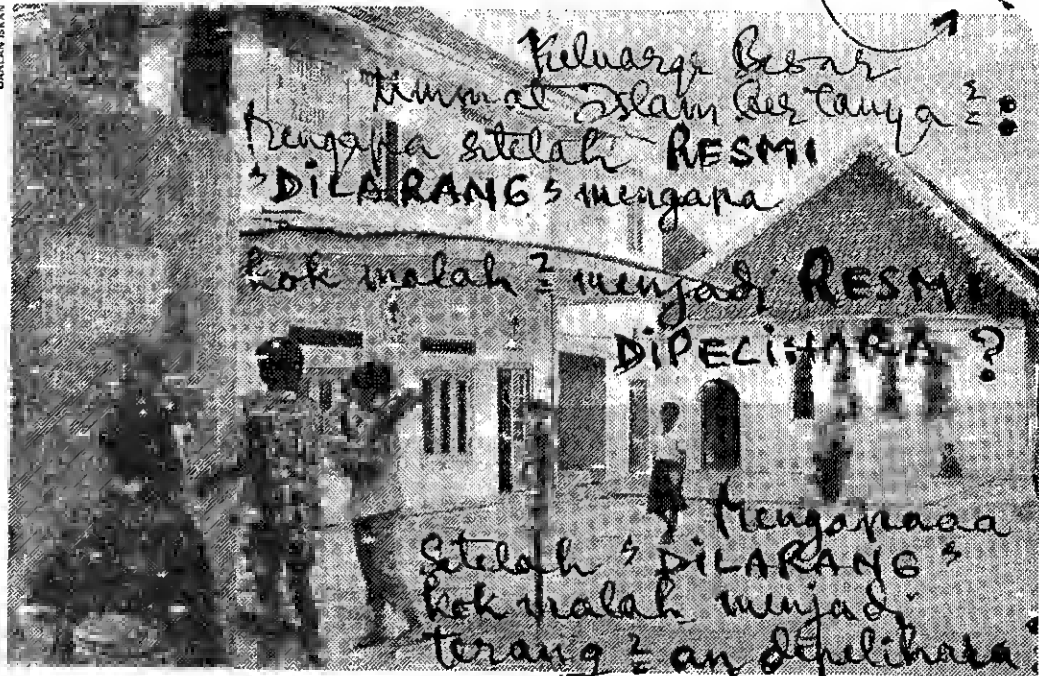 Keluarga Besar
Ummat Islam bertanya ² :
Mengapa setelah RESMI
"DILARANG" mengapa
kok malah ² menjadi RESMI
DIPELIHARA ?
Mengapaaa
Setelah "DILARANG"
kok malah menjadi
terang ² an dipelihara ?